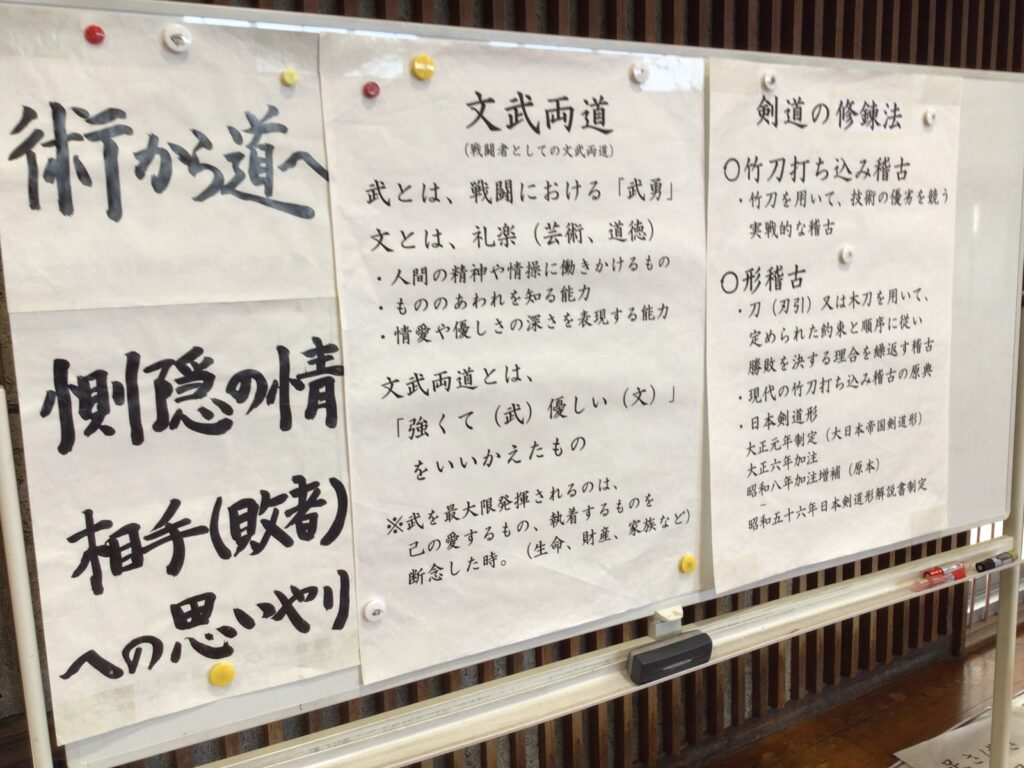 術から道へ
惻隠の情
相手(敗者)
への思いやり
文武両道
(戦闘者としての文武両道)
武とは、戦闘における「武勇」
文とは、礼楽(芸術、道徳)
・人間の精神や情操に働きかけるもの
・もののあわれを知る能力
・情愛や優しさの深さを表現する能力
文武両道とは、
「強くて(武)優しい(文)」
をいいかえたもの
※武を最大限発揮されるのは、
己の愛するもの、執着するものを
断念した時。(生命、財産、家族など)
剣道の修錬法
〇竹刀打ち込み稽古
・竹刀を用いて、技術の優劣を競う
実戦的な稽古
〇形稽古
・刀(刃引)又は木刀を用いて、
定められた約束と順序に従い
勝敗を決する理合を繰返す稽古
・現代の竹刀打ち込み稽古の原典
・日本剣道形
大正元年制定(大日本帝国剣道形)
大正六年加注
昭和八年加注増補(原本)
昭和五十六年日本剣道形解説書制定